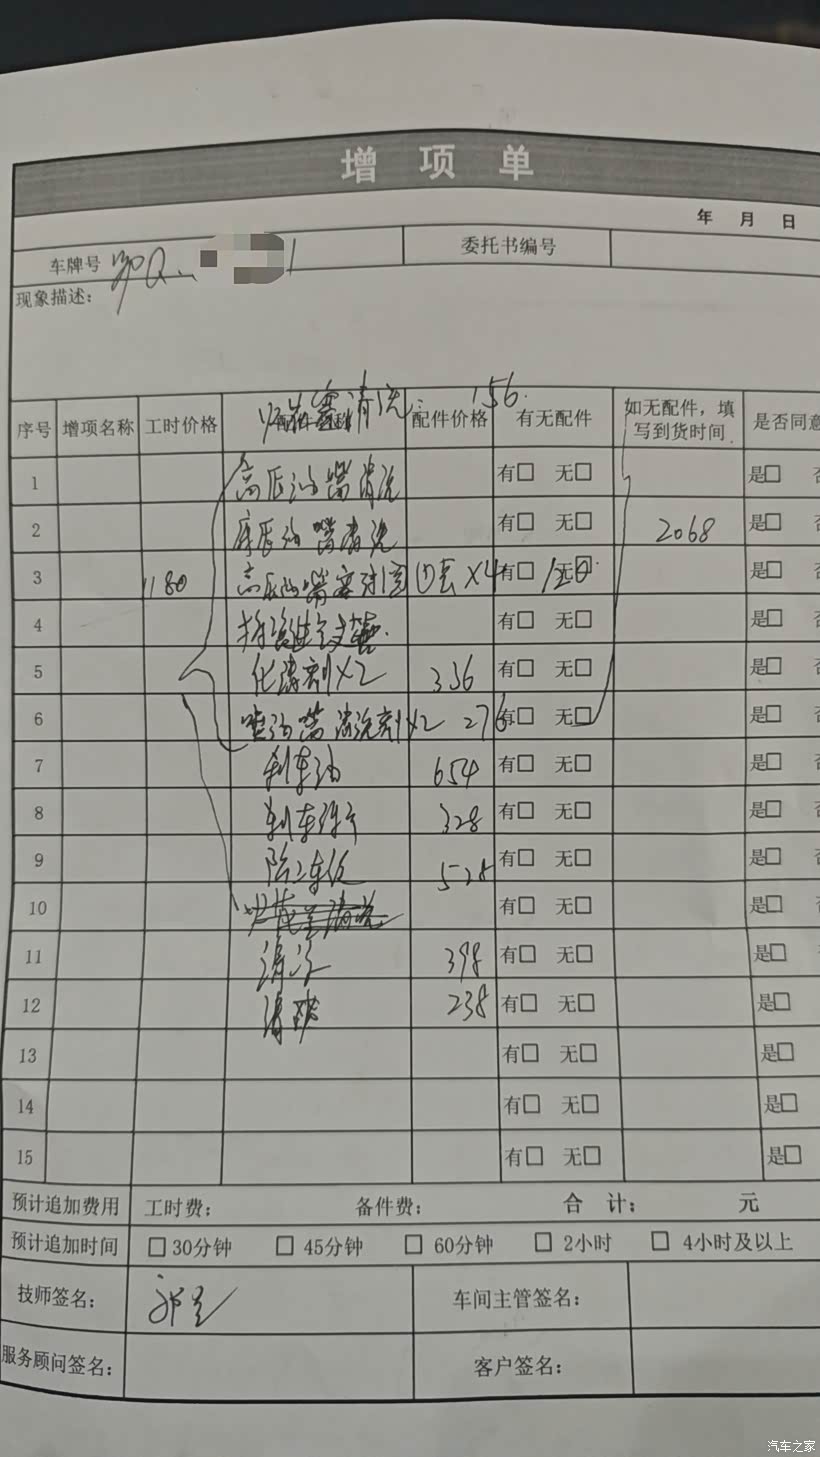 增项单
年 月 日
车牌号 鄂Q 委托书编号
现象描述：
清洗 156
序号 增项名称 工时价格 配件价格 有无配件 如无配件，填写到货时间 是否同意
1 高压油嘴清洗 有□ 无□ 是□
2 油嘴清洗 有□ 无□ 2068 是□
3 1180 高压油嘴密封圈 X4 有□ 无□ 是□
4 有□ 无□ 是□
5 X2 336 有□ 无□ 是□
6 喷油嘴清洗剂X2 276 有□ 无□ 是□
7 刹车油 654 有□ 无□ 是□
8 刹车 328 有□ 无□ 是□
9 528 有□ 无□ 是□
10 有□ 无□ 是□
11 398 有□ 无□ 是□
12 238 有□ 无□ 是□
13 有□ 无□ 是□
14 有□ 无□ 是□
15 有□ 无□ 是□
预计追加费用 工时费： 备件费： 合 计： 元
预计追加时间 □30分钟 □45分钟 □60分钟 □2小时 □4小时及以上
技师签名： 车间主管签名：
服务顾问签名： 客户签名：
汽车之家